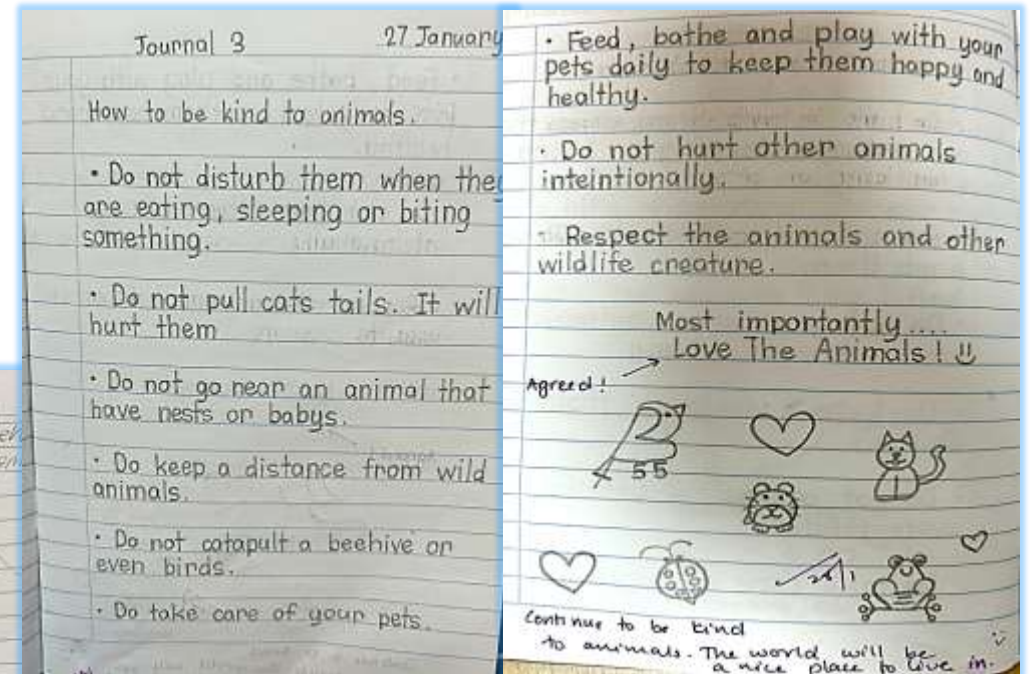 Journal 3 27 January
How to be kind to animals.
• Do not disturb them when they
are eating, sleeping or biting
something.
• Do not pull cats tails. It will
hurt them
• Do not go near an animal that
have nests or babys.
• Do keep a distance from wild
animals.
• Do not catapult a beehive or
even birds.
• Do take care of your pets.
• Feed, bathe and play with your
pets daily to keep them happy and
healthy.
• Do not hurt other animals
inteintionally.
• Respect the animals and other
wildlife creature.
Most importantly....
Love The Animals!
Agreed!
Continue to be kind
to animals. The world will be
a nice place to live in.